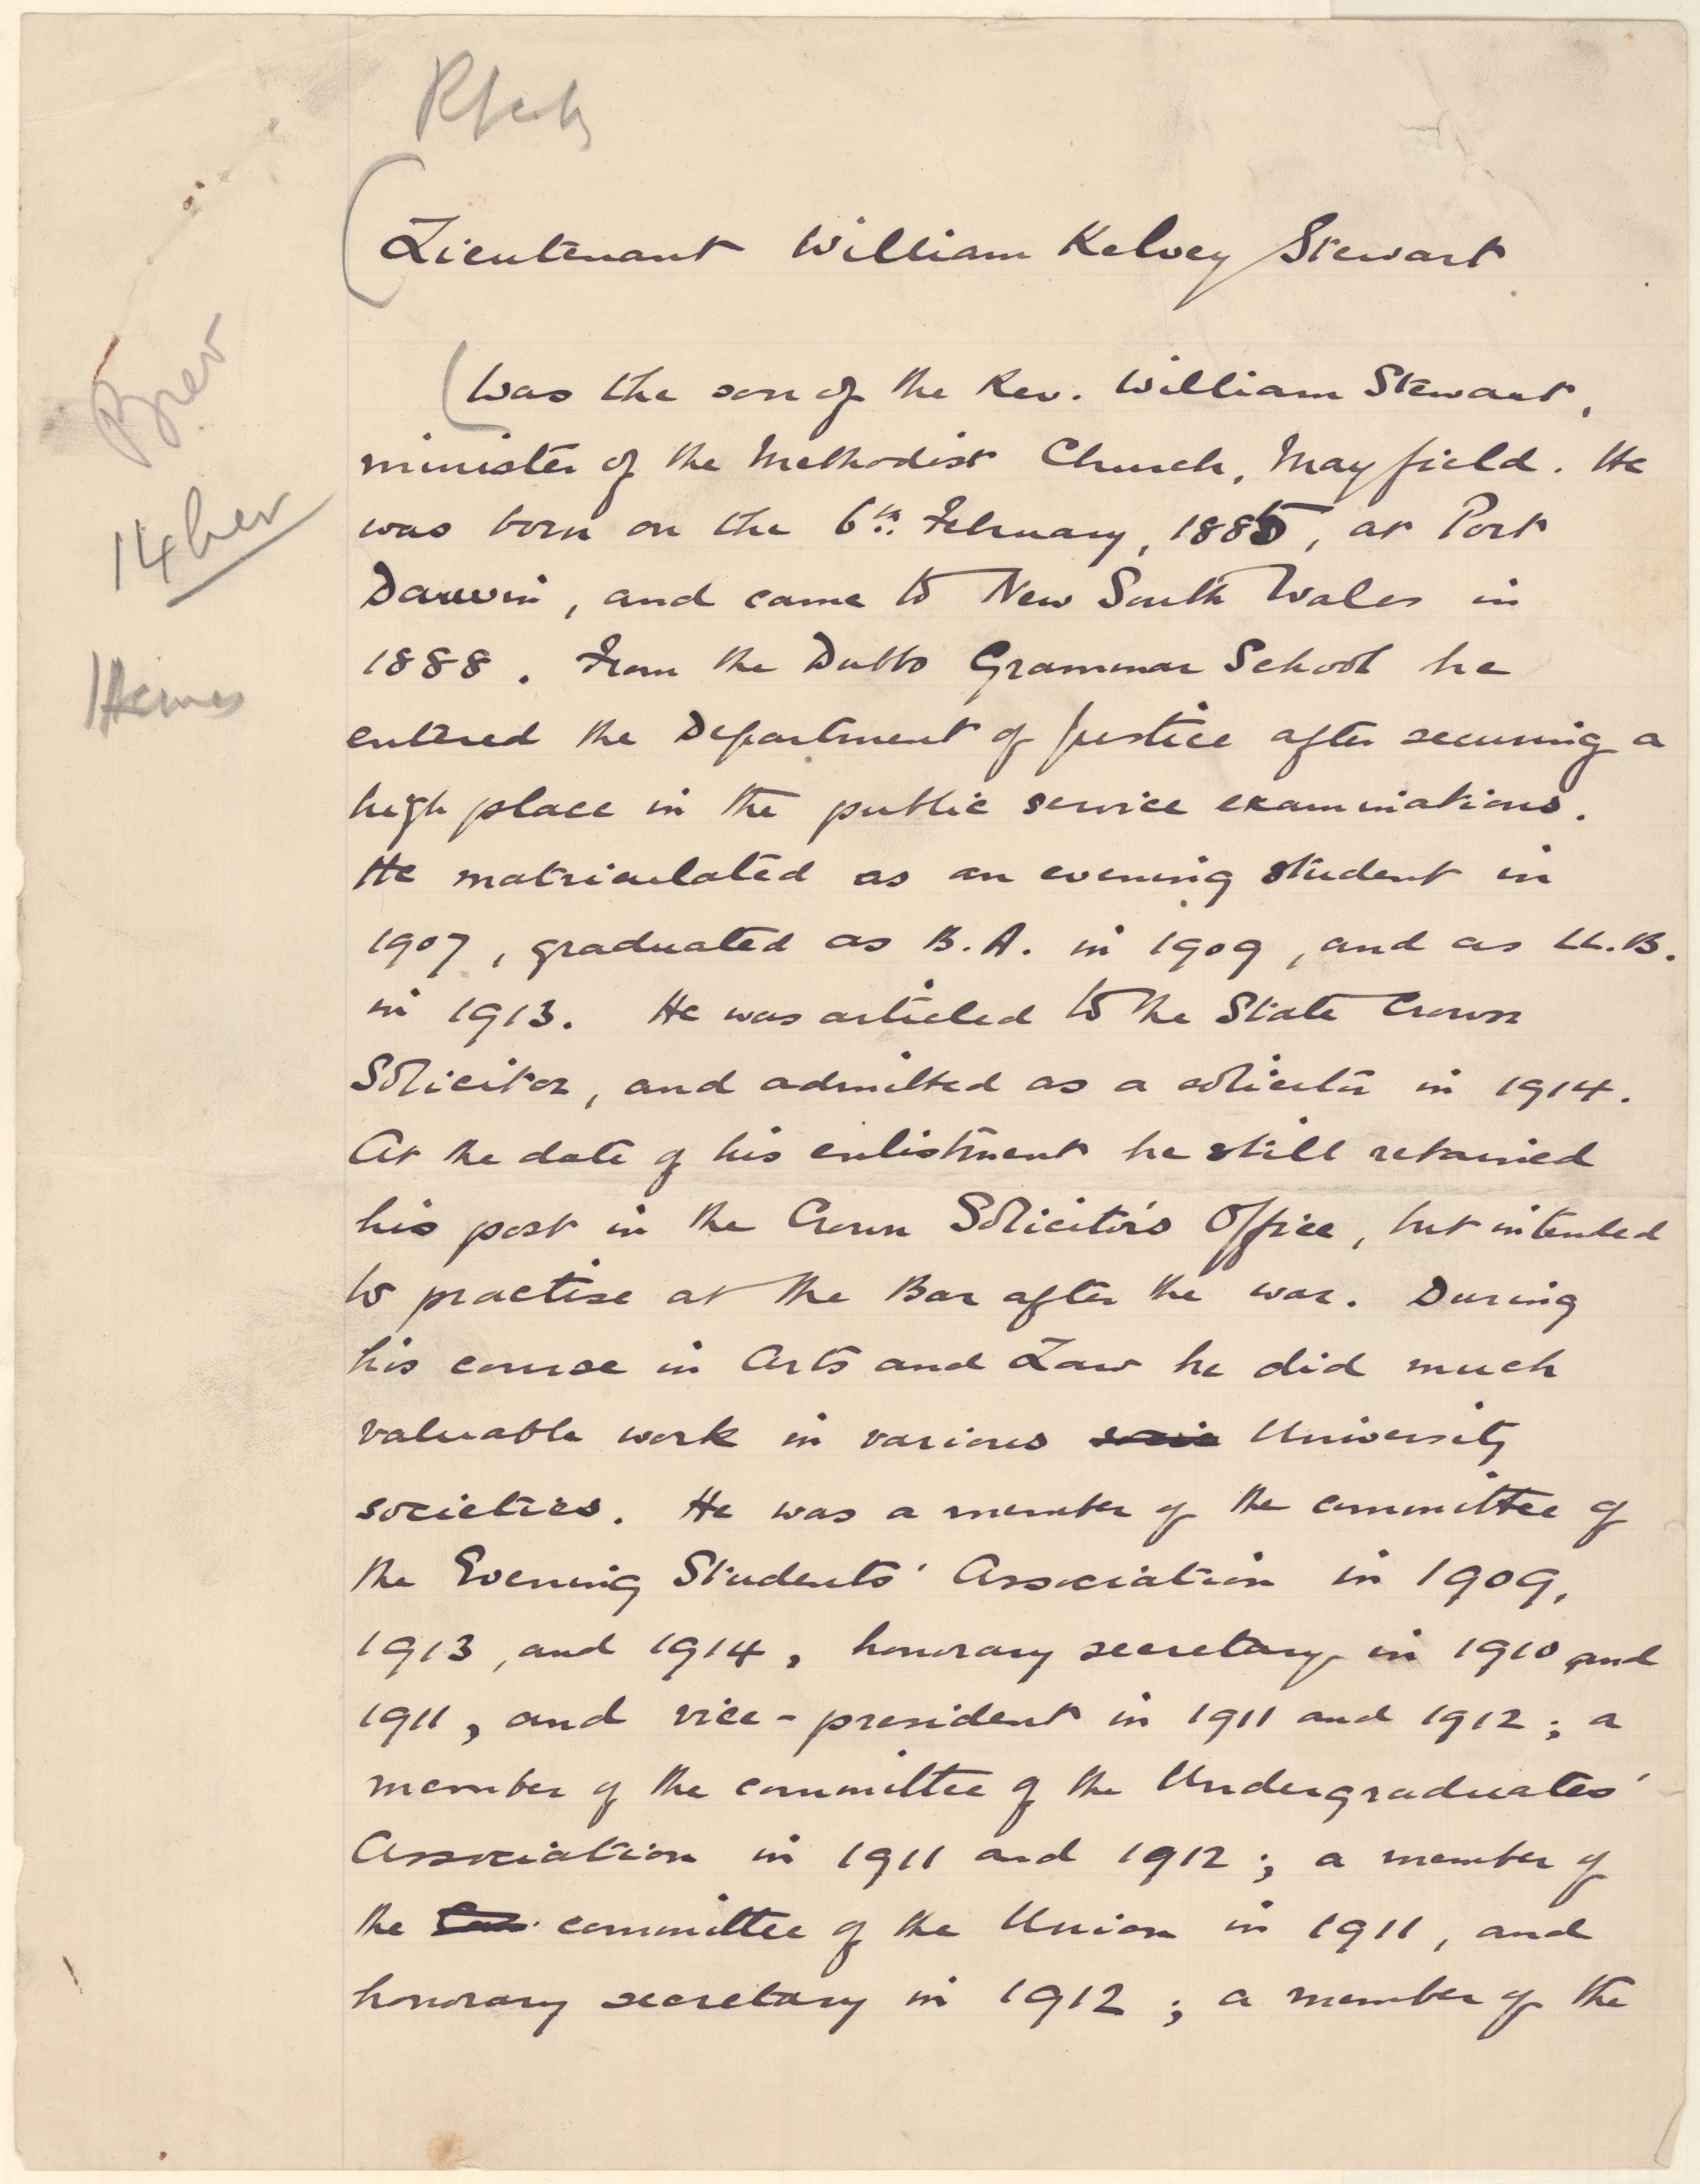 Lieutenant William Kelvey Stewart
Was the son of the Rev. William Stewart,
minister of the Methodist Church, Mayfield. He
was born on the 6th February, 1885, at Port
Darwin, and came to New South Wales in
1888. From the Dubbo Grammar School he
entered the Department of Justice after securing a
high place in the public service examinations.
He matriculated as an evening student in
1907, graduated as B.A. in 1909, and as LL.B.
in 1913. He was articled to the State Crown
Solicitor, and admitted as a solicitor in 1914.
At the date of his enlistment he still retained
his post in the Crown Solicitor's Office, but intended
to practise at the Bar after the war. During
his course in Arts and Law he did much
valuable work in various University
societies. He was a member of the committee of
the Evening Students' Association in 1909,
1913, and 1914, honorary secretary in 1910 and
1911, and vice-president in 1911 and 1912; a
member of the committee of the Undergraduates'
Association in 1911 and 1912; a member of
the committee of the Union in 1911, and
honorary secretary in 1912; a member of the